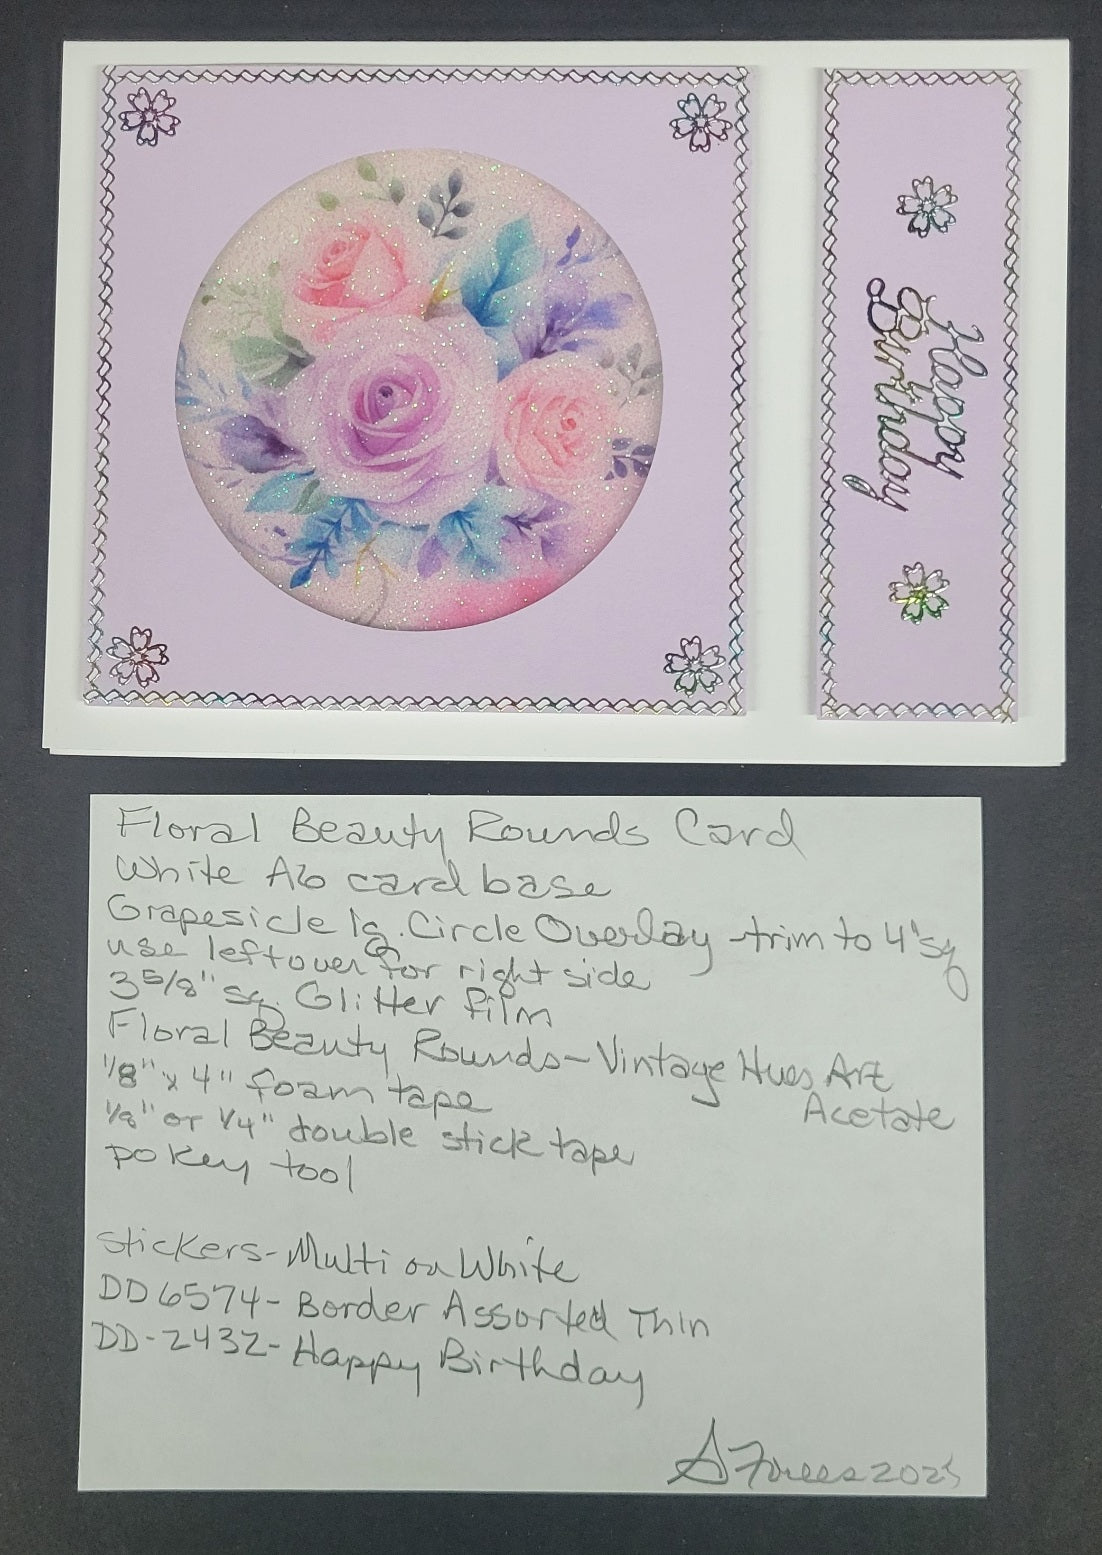 Happy
Birthday
Floral Beauty Rounds Card
White A6 card base
Grapesicle lg. Circle Overlay - trim to 4" sq
use leftover for right side
3 5/8" sq. Glitter film
Floral Beauty Rounds - Vintage Hues Art
Acetate
1/8" x 4" foam tape
1/8" or 1/4" double stick tape
pokey tool
Stickers - Multi on White
DD6574 - Border Assorted Thin
DD-2432 - Happy Birthday
2025